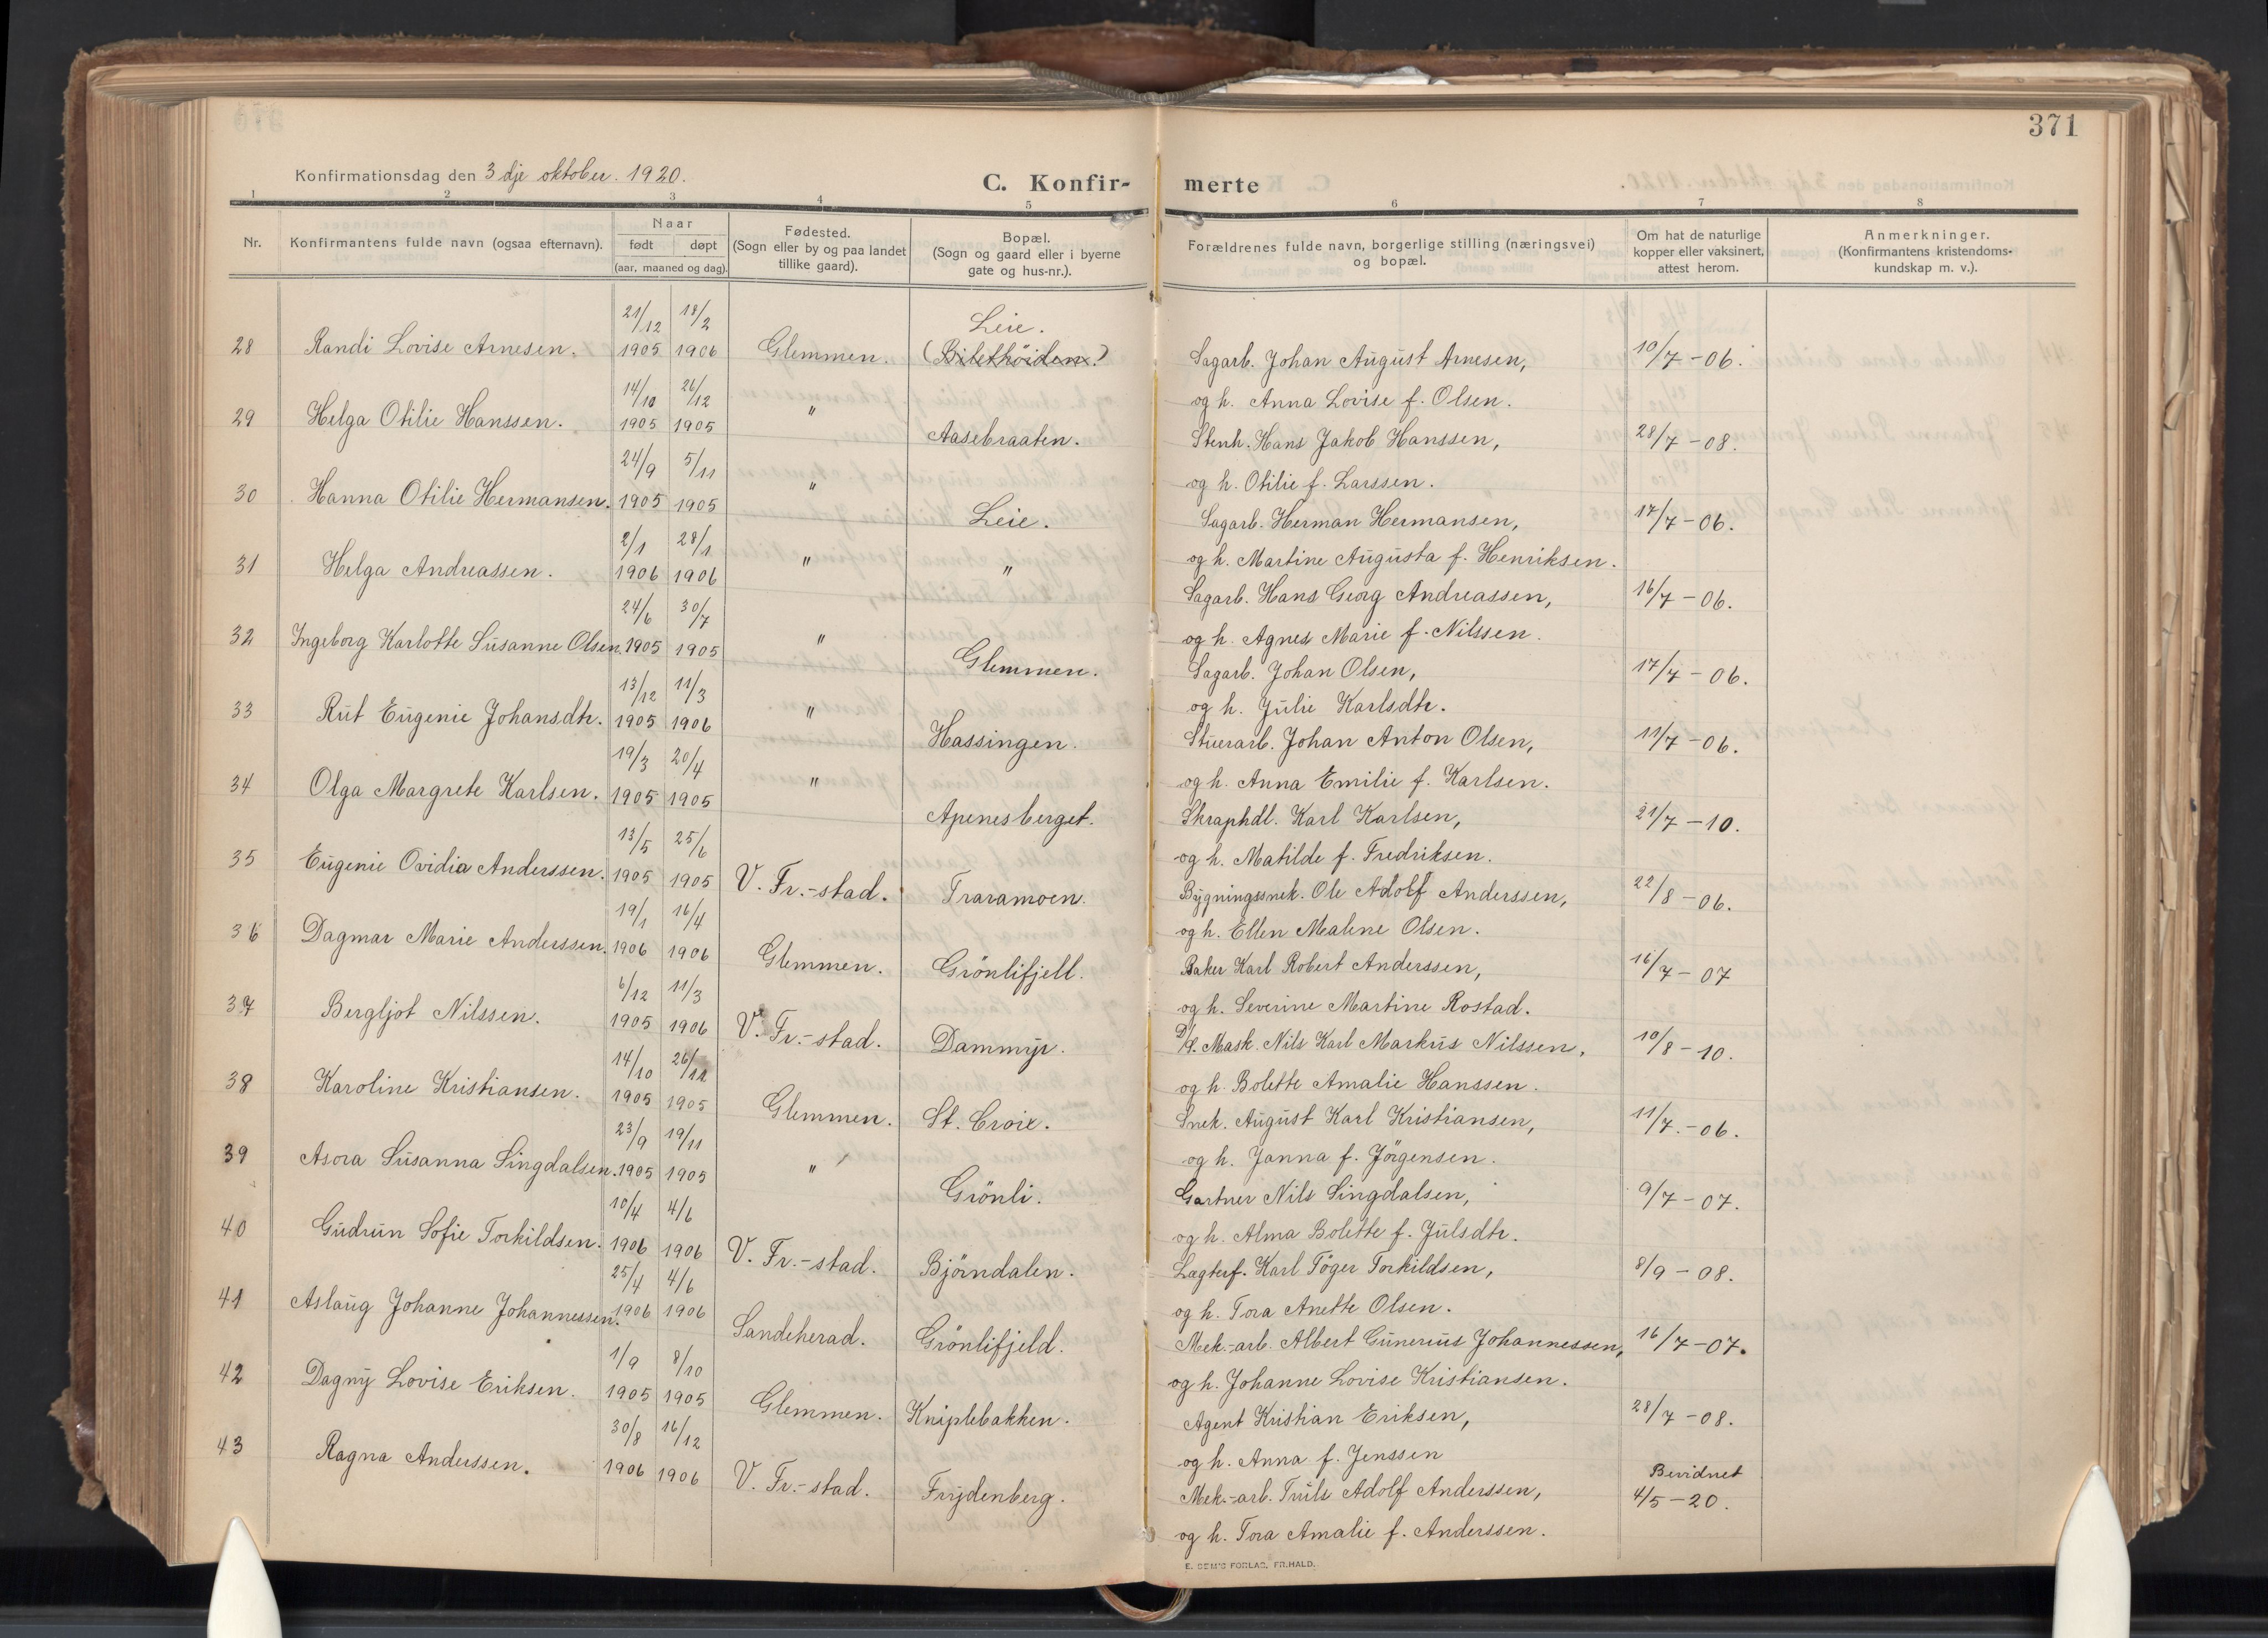 371
Konfirmationsdag den 3dje oktober. 1920.
C. Konfir- merte
1 2 3 4 5 6 7 8
Nr.
Konfirmantens fulde navn (ogsaa efternavn).
Naar
født døpt
(aar, maaned og dag).
Fødested.
(Sogn eller by og paa landet
tillike gaard).
Bopæl.
(Sogn og gaard eller i byerne
gate og hus-nr.).
Forældrenes fulde navn, borgerlige stilling (næringsvei)
og bopæl.
Om hat de naturlige
kopper eller vaksinert,
attest herom.
Anmerkninger.
(Konfirmantens kristendoms-
kundskap m. v.).
21/12 18/2 Leie.
28 Randi Lovise Arnesen. 1905 1906 Glemmen. (Bilethöiden.) Sagarb. Johan August Arnesen, 10/7 - 06.
14/10 26/12 og h. Anna Lovise f. Olsen.
29 Helga Otilie Hanssen. 1905 1905 " Aasebraaten. Stenh. Hans Jakob Hanssen, 28/7 - 08.
24/9 5/11 og h. Otilie f. Larssen.
30 Hanna Otilie Hermansen. 1905 1905 " Leie. Sagarb. Herman Hermansen, 17/7 - 06.
2/1 28/1 og h. Martine Augusta f. Henriksen.
31 Helga Andreassen. 1906 1906 " " Sagarb. Hans Georg Andreassen, 16/7 - 06.
24/6 30/7 og h. Agnes Marie f. Nilssen.
32 Ingeborg Karlotte Susanne Olsen. 1905 1905 " Glemmen. Sagarb. Johan Olsen, 17/7 - 06.
13/12 11/3 og h. Julie Karlsdtr.
33 Rut Eugenie Johansdtr. 1905 1906 " Hassingen. Stuerarb. Johan Anton Olsen, 11/7 - 06.
19/3 20/4 og h. Anna Emilie f. Karlsen.
34 Olga Margrete Karlsen. 1905 1905 " Apenesberget. Skraphdl. Karl Karlsen, 21/7 - 10.
13/5 25/6 og h. Matilde f. Fredriksen.
35 Eugenie Ovidia Anderssen. 1905 1905 V. Fr.-stad. Traramoen. Bygningssnek. Ole Adolf Anderssen, 22/8 - 06.
19/1 16/4 og h. Ellen Malene Olsen.
36 Dagmar Marie Anderssen. 1906 1906 Glemmen. Grönlifjell. Baker Karl Robert Anderssen, 16/7 - 07
6/12 11/3 og h. Severine Martine Rostad.
37 Bergljot Nilssen. 1905 1906 V. Fr.-stad. Dammyr. D/S. Mask. Nils Karl Markus Nilssen, 10/8 - 10.
14/10 26/11 og h. Bolette Amalie Hanssen.
38 Karoline Kristiansen. 1905 1905 Glemmen. St. Croix. Snek. August Karl Kristiansen, 11/7. - 06.
23/9 19/11 og h. Janna f. Jörgensen.
39 Asora Susanna Singdalsen. 1905 1905 " Grönli. Gartner Nils Singdalsen, 9/7 - 07.
10/4 4/6 og h. Alma Bolette f. Julsdtr.
40 Gudrun Sofie Torkildsen. 1906 1906 V. Fr.-stad. Björndalen. Lægterf. Karl Töger Torkildsen, 8/9 - 08.
25/4 4/6 og h. Tora Anette Olsen.
41 Aslaug Johanne Johannessen. 1906 1906 Sandeherad. Grönlifjeld. Mek.-arb. Albert Gunerius Johannessen, 16/7 - 07.
1/9 8/10 og h. Johanne Lovise Kristiansen.
42 Dagny Lovise Eriksen. 1905 1905 Glemmen. Kniplebakken. Agent Kristian Eriksen, 28/7 - 08.
30/8 16/12 og h. Anna f. Jenssen
43 Ragna Anderssen. 1906 1906 V. Fr.-stad. Frydenberg. Mek.-arb. Truls Adolf Anderssen, Bevidnet 4/5 - 20.
og h. Tora Amalie f. Anderssen.
E. SEM'S FORLAG, FR.HALD.